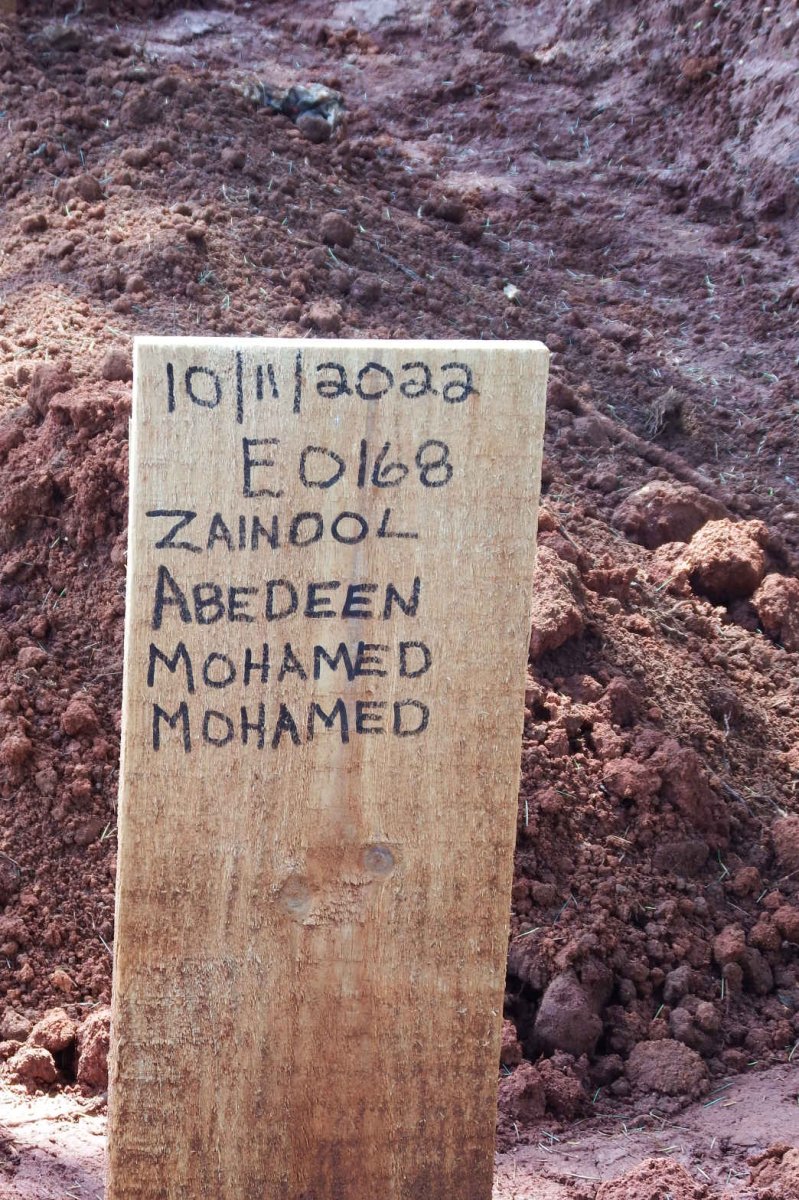 10/11/2022
E0168
ZAINOOL
ABEDEEN
MOHAMED
MOHAMED